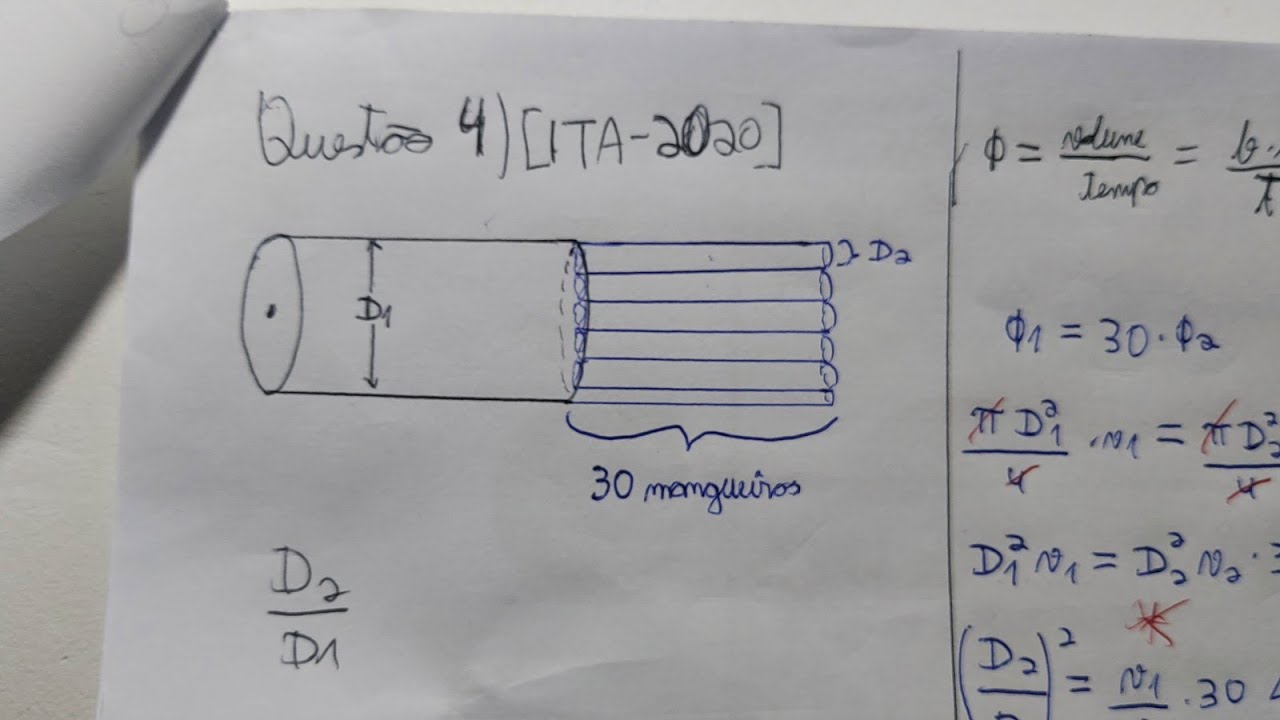 Questão 4) [ITA-2020]
D1
D2
30 mangueiras
D2
D1
Φ = volume / Tempo =
Φ1 = 30 · Φ2
π D1² / 4 · v1 = π D2² / 4
D1² v1 = D2² v2 ·
*
(D2 / )² = v1 / · 30